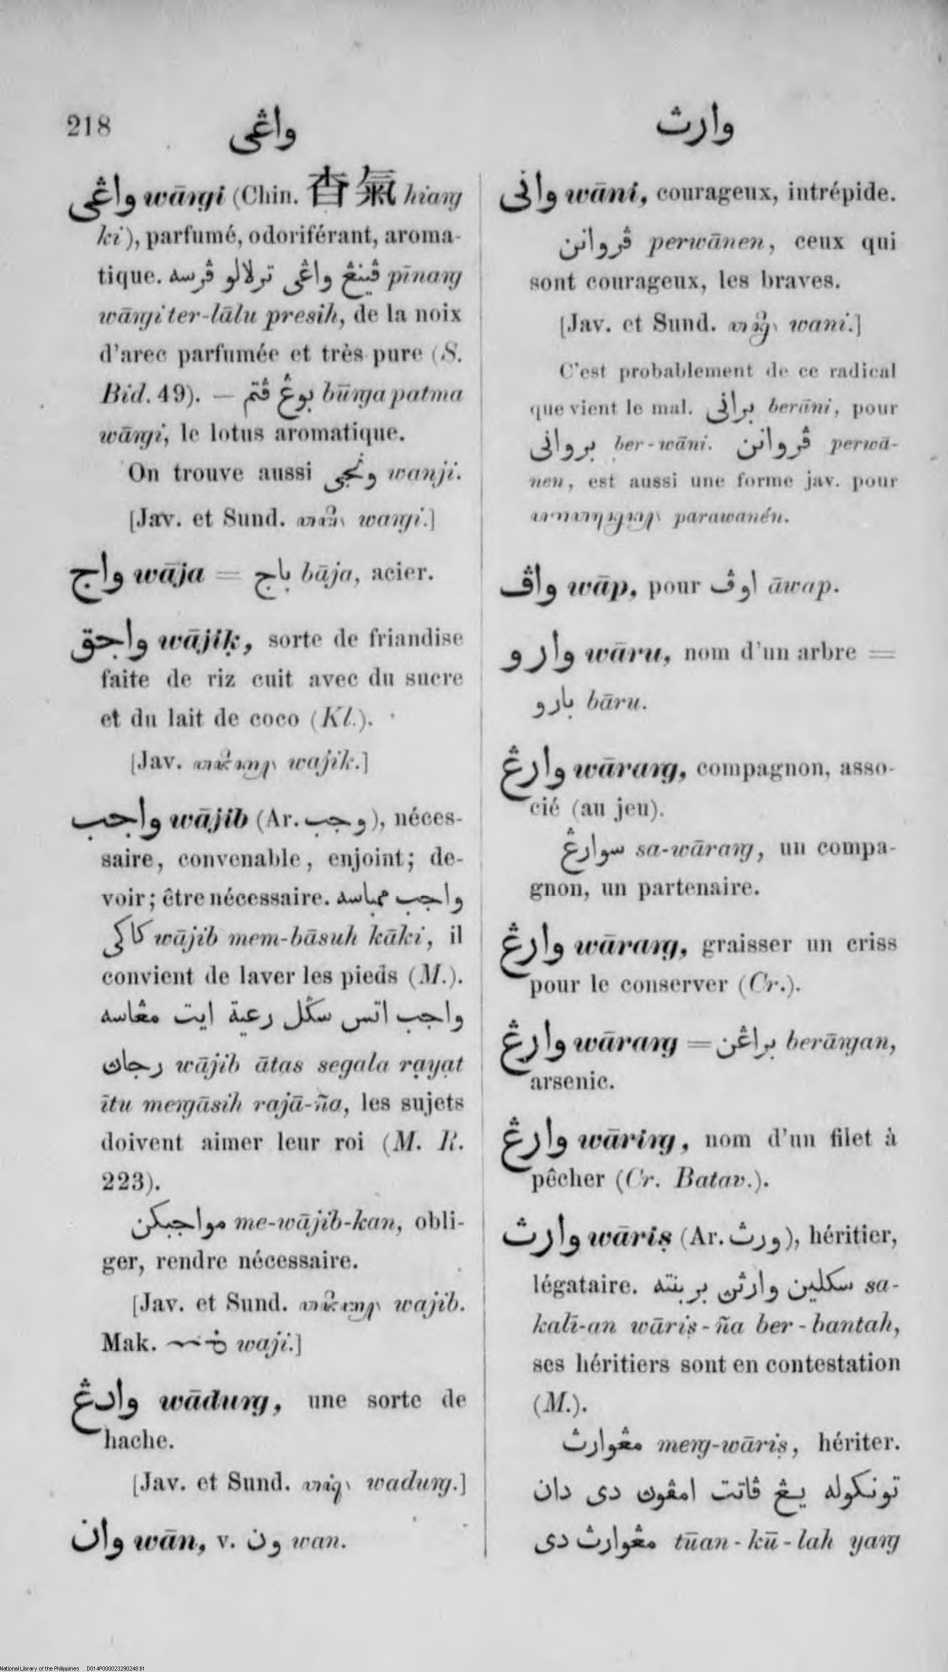 218 واڠي
وارث
واڠي wāṅgi (Chin. 香氣 hiaṅg
ki), parfumé, odoriférant, aroma-
tique. ڤينڠ واڠي ترلالو ڤرسه pīnaṅg
wāṅgi ter-lālu presih, de la noix
d'arec parfumée et très pure (S.
Bid. 49). — بوڠ ڤتم būṅga patma
wāṅgi, le lotus aromatique.
On trouve aussi ونجي wanji.
[Jav. et Sund. waṅgi.]
واج wāja = باج bāja, acier.
واجق wājiḳ, sorte de friandise
faite de riz cuit avec du sucre
et du lait de coco (Kl.).
[Jav. wajik.]
واجب wājib (Ar. وجب), néces-
saire, convenable, enjoint; de-
voir; être nécessaire. واجب ممباسه
كاكي wājib mem-bāsuh kāki, il
convient de laver les pieds (M.).
واجب اتس سكل رعية ايت مڠاسه
رجاڽ wājib ātas segala rạyat
ītu meṅgāsih rajā-ña, les sujets
doivent aimer leur roi (M. R.
223).
مواجبكن me-wājib-kan, obli-
ger, rendre nécessaire.
[Jav. et Sund. wajib.
Mak. waji.]
وادڠ wāduṅg, une sorte de
hache.
[Jav. et Sund. waduṅg.]
وان wān, v. ون wan.
واني wāni, courageux, intrépide.
ڤروانن perwānen, ceux qui
sont courageux, les braves.
[Jav. et Sund. wani.]
C'est probablement de ce radical
que vient le mal. براني berāni, pour
برواني ber-wāni. ڤروانن perwā-
nen, est aussi une forme jav. pour
parawanén.
واڤ wāp, pour اوڤ āwap.
وارو wāru, nom d'un arbre =
بارو bāru.
وارڠ wāraṅg, compagnon, asso-
cié (au jeu).
سوارڠ sa-wāraṅg, un compa-
gnon, un partenaire.
وارڠ wāraṅg, graisser un criss
pour le conserver (Cr.).
وارڠ wāraṅg = براڠن berāṅgan,
arsenic.
وارڠ wāriṅg, nom d'un filet à
pêcher (Cr. Batav.).
وارث wāriṣ (Ar. ورث), héritier,
légataire. سكلين وارثن بربنته sa-
kalī-an wāriṣ-ña ber-bantah,
ses héritiers sont en contestation
(M.).
مڠوارث meṅg-wāriṣ, hériter.
تونكوله يڠ ڤاتت امڤون دي دان
مڠوارث دي tūan-kū-lah yaṅg
National Library of the Philippines